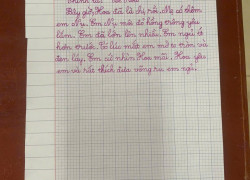 Bây giờ, Hoa đã là chị rồi. Mẹ có thêm
em Nụ. Em Nụ môi đỏ hồng trông yêu
lắm. Em đã lớn lên nhiều. Em ngủ ít
hơn trước. Có lúc mắt em mở to tròn và
đen láy. Em cứ nhìn Hoa mãi. Hoa yêu
em và rất thích đưa võng ru em ngủ.